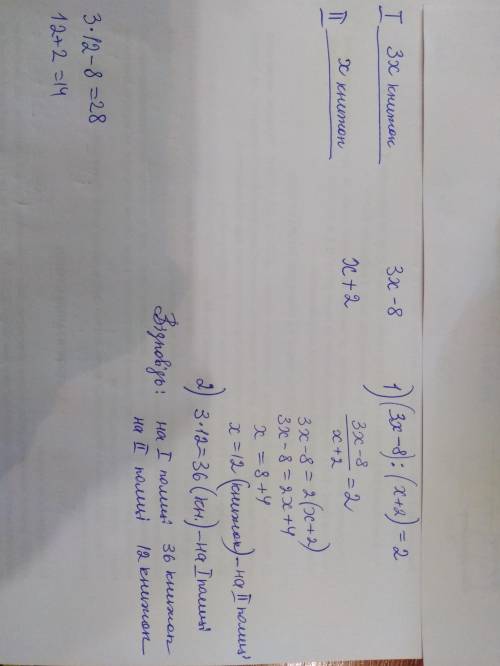 I 3x книжок 3x-8 1) (3x-8):(x+2)=2
II x книжок x+2
3x-8
x+2
=2
3x-8=2(x+2)
3x-8=2x+4
x=8+4
x=12 (книжок)-на II полиці
2) 3·12=36(кн.)-на I полиці
Відповідь: на I полиці 36 книжок
на II полиці 12 книжок
3·12-8=28
12+2=14